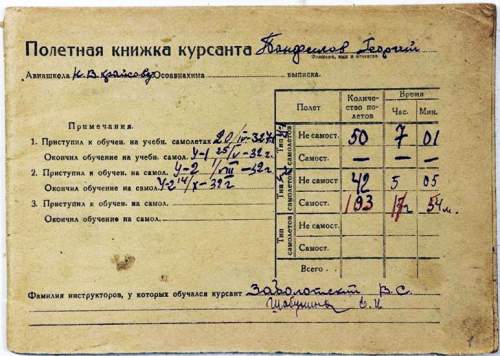 Полетная книжка курсанта Панфилов Георгий
Фамилия, имя и отчество.
Авиашкола Осоавиахима выписка.
Примечания.
1. Приступил к обучен. на учебн. самолетах 20/IV-32г.
Окончил обучение на учебн. самол. У-1 25/V-32г.
2. Приступил к обучен. на самол. У-2 1/VIII-32г
Окончил обучение на самол. У-2 14/X-32г
3. Приступил к обучен. на самол.
Окончил обучение на самол.
Полет Количество полетов Время
Час. Мин.
Тип самолетов Не самост. 50 7 01
Самост. — — —
Тип самолетов Не самост. 42 5 05
Самост. 193 17г 54м.
Тип самолетов Не самост.
Самост.
Всего
Фамилия инструкторов, у которых обучался курсант В. С.